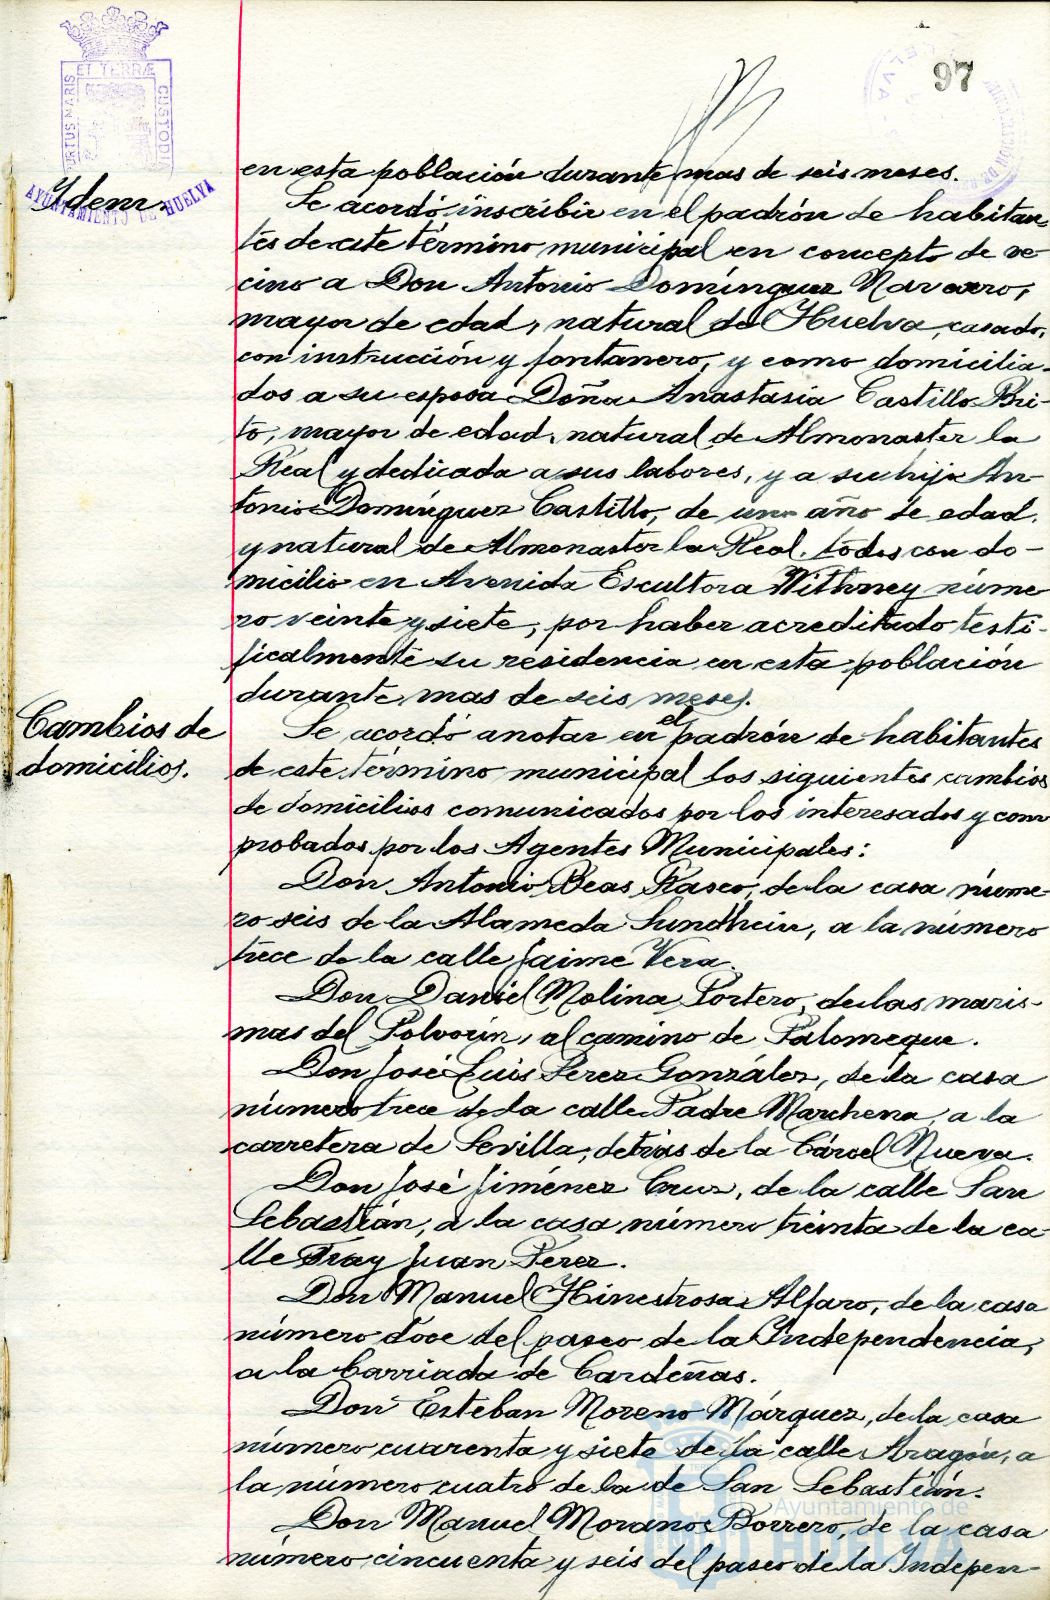 97
ET TERRÆ
CUSTODIA
AYUNTAMIENTO DE HUELVA
en esta población durante mas de seis meses.
Ydem.
Se acordó inscribir en el padrón de habitan-
tes de este término municipal en concepto de ve-
cino a Don Antonio Domínguez Navarro,
mayor de edad, natural de Huelva, casado,
con instrucción y fontanero, y como domicilia-
dos a su esposa Doña Anastasia Castillo Bri-
to, mayor de edad, natural de Almonaster la
Real y dedicada a sus labores, y a su hijo An-
tonio Domínguez Castillo, de un año de edad.
y natural de Almonaster la Real. todos con do-
micilio en Avenida Escultora Withney núme
ro veinte y siete, por haber acreditado testi-
ficalmente su residencia en esta población
durante mas de seis meses.
Cambios de
domicilios.
Se acordó anotar en el padrón de habitantes
de este término municipal los siguientes cambios
de domicilios comunicados por los interesados y com
probados por los Agentes Municipales:
Don Antonio Beas Rasco, de la casa núme-
ro seis de la Alameda Sundhein, a la número
trece de la calle Jaime Vera.
Don Daniel Molina Portero, de las maris-
mas del Polvorín, al camino de Palomeque.
Don José Luis Perez González, de la casa
número trece de la calle Padre Marchena, a la
carretera de Sevilla, detrás de la Cárcel Nueva.
Don José Jiménez Cruz, de la calle San
Sebastián, a la casa número treinta de la ca-
lle Fray Juan Perez.
Don Manuel Hinestrosa Alfaro, de la casa
número doce del paseo de la Independencia,
a la barriada de Cardeñas.
Don Esteban Moreno Márquez, de la casa
número cuarenta y siete de la calle Aragón, a
la número cuatro de la de San Sebastián.
Don Manuel Morano Borrero, de la casa
número cincuenta y seis del paseo de la Indepen-
Ayuntamiento de
HUELVA